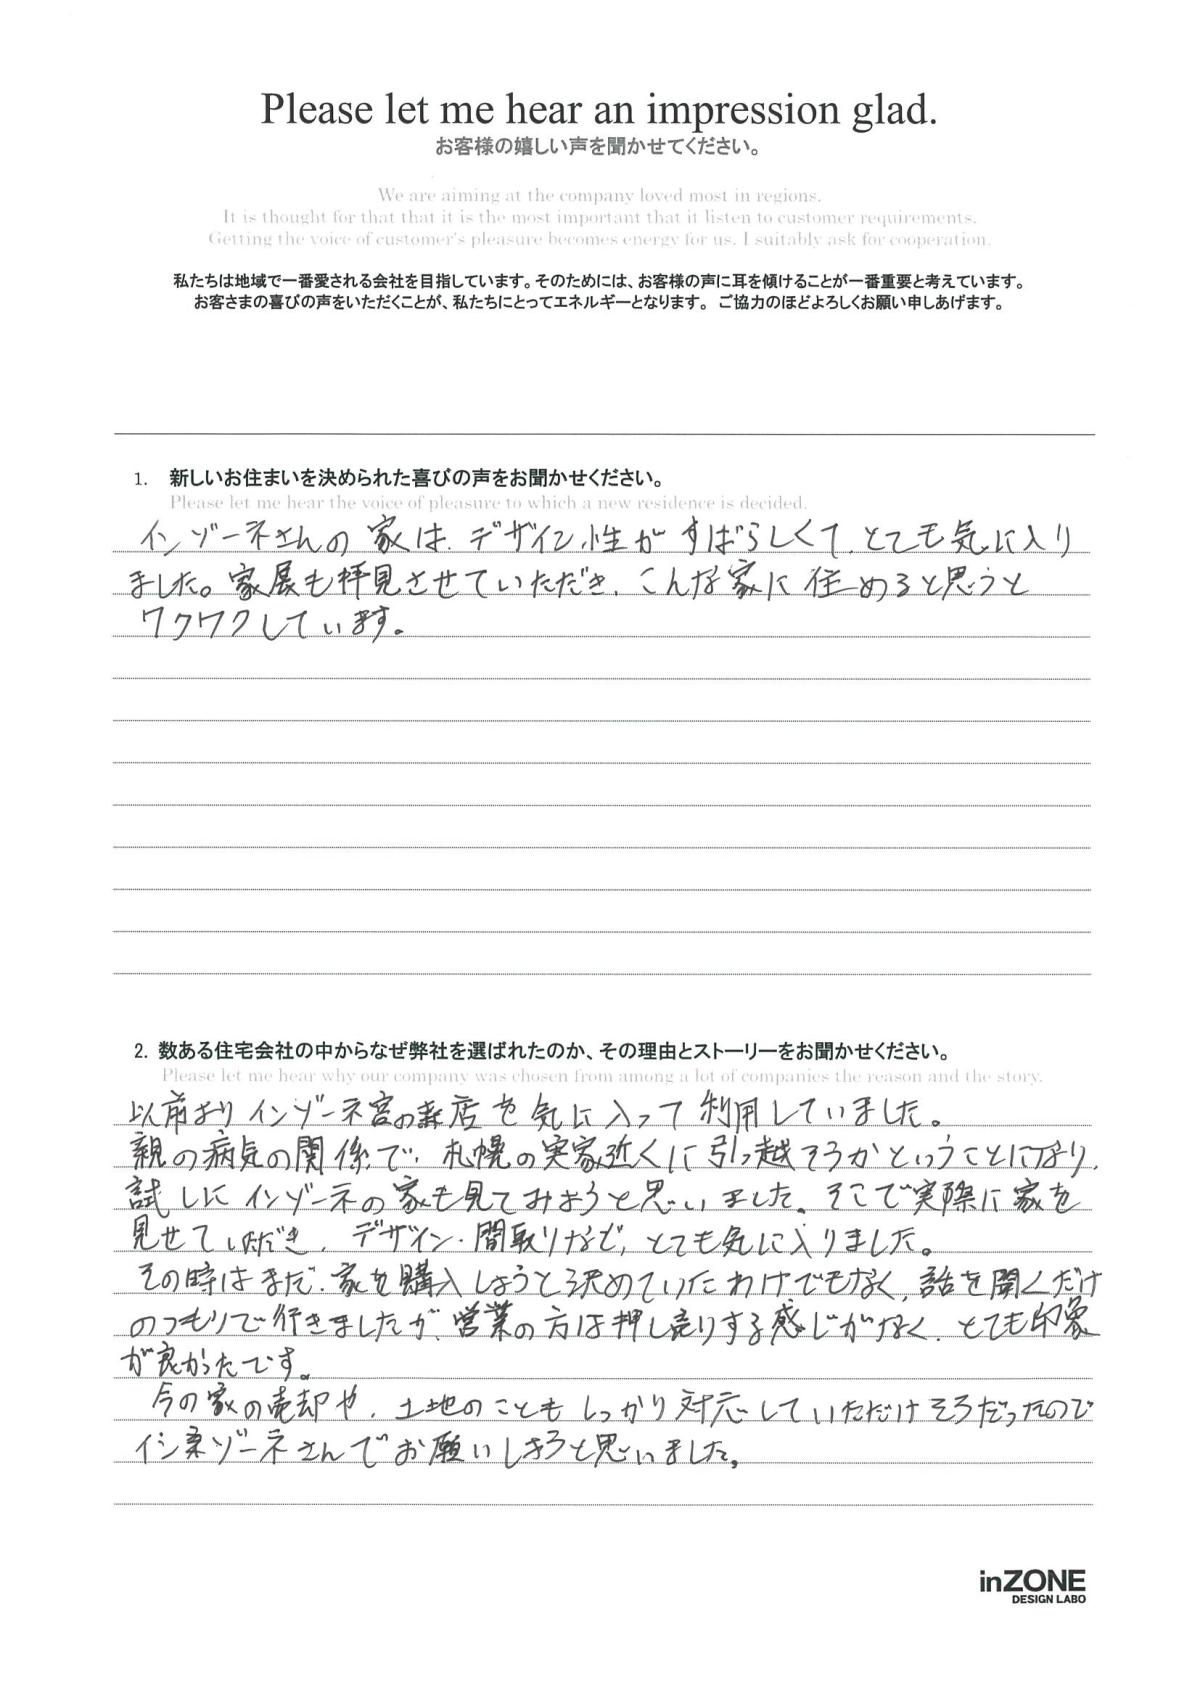 Please let me hear an impression glad.
お客様の嬉しい声を聞かせてください。
We are aiming at the company loved most in regions.
It is thought for that that it is the most important that it listen to customer requirements.
Getting the voice of customer's pleasure becomes energy for us. I suitably ask for cooperation.
私たちは地域で一番愛される会社を目指しています。そのためには、お客様の声に耳を傾けることが一番重要と考えています。
お客さまの喜びの声をいただくことが、私たちにとってエネルギーとなります。ご協力のほどよろしくお願い申しあげます。
1. 新しいお住まいを決められた喜びの声をお聞かせください。
Please let me hear the voice of pleasure to which a new residence is decided.
インゾーネさんの家は、デザイン性がすばらしくて、とても気に入り
ました。家展も拝見させていただき、こんな家に住めると思うと
ワクワクしています。
2. 数ある住宅会社の中からなぜ弊社を選ばれたのか、その理由とストーリーをお聞かせください。
Please let me hear why our company was chosen from among a lot of companies the reason and the story.
以前よりインゾーネ宮の森店を気に入って利用していました。
親の病気の関係で、札幌の実家近くに引っ越そうかということになり、
試しにインゾーネの家も見てみようと思いました。そこで実際に家を
見せていただき、デザイン・間取りなど、とても気に入りました。
その時はまだ、家を購入しようと決めていたわけでもなく、話を聞くだけ
のつもりで行きましたが、営業の方は押し売りする感じがなく、とても印象
が良かったです。
今の家の売却や、土地のこともしっかり対応していただけそうだったので
インゾーネさんでお願いしようと思いました。
inZONE
DESIGN LABO